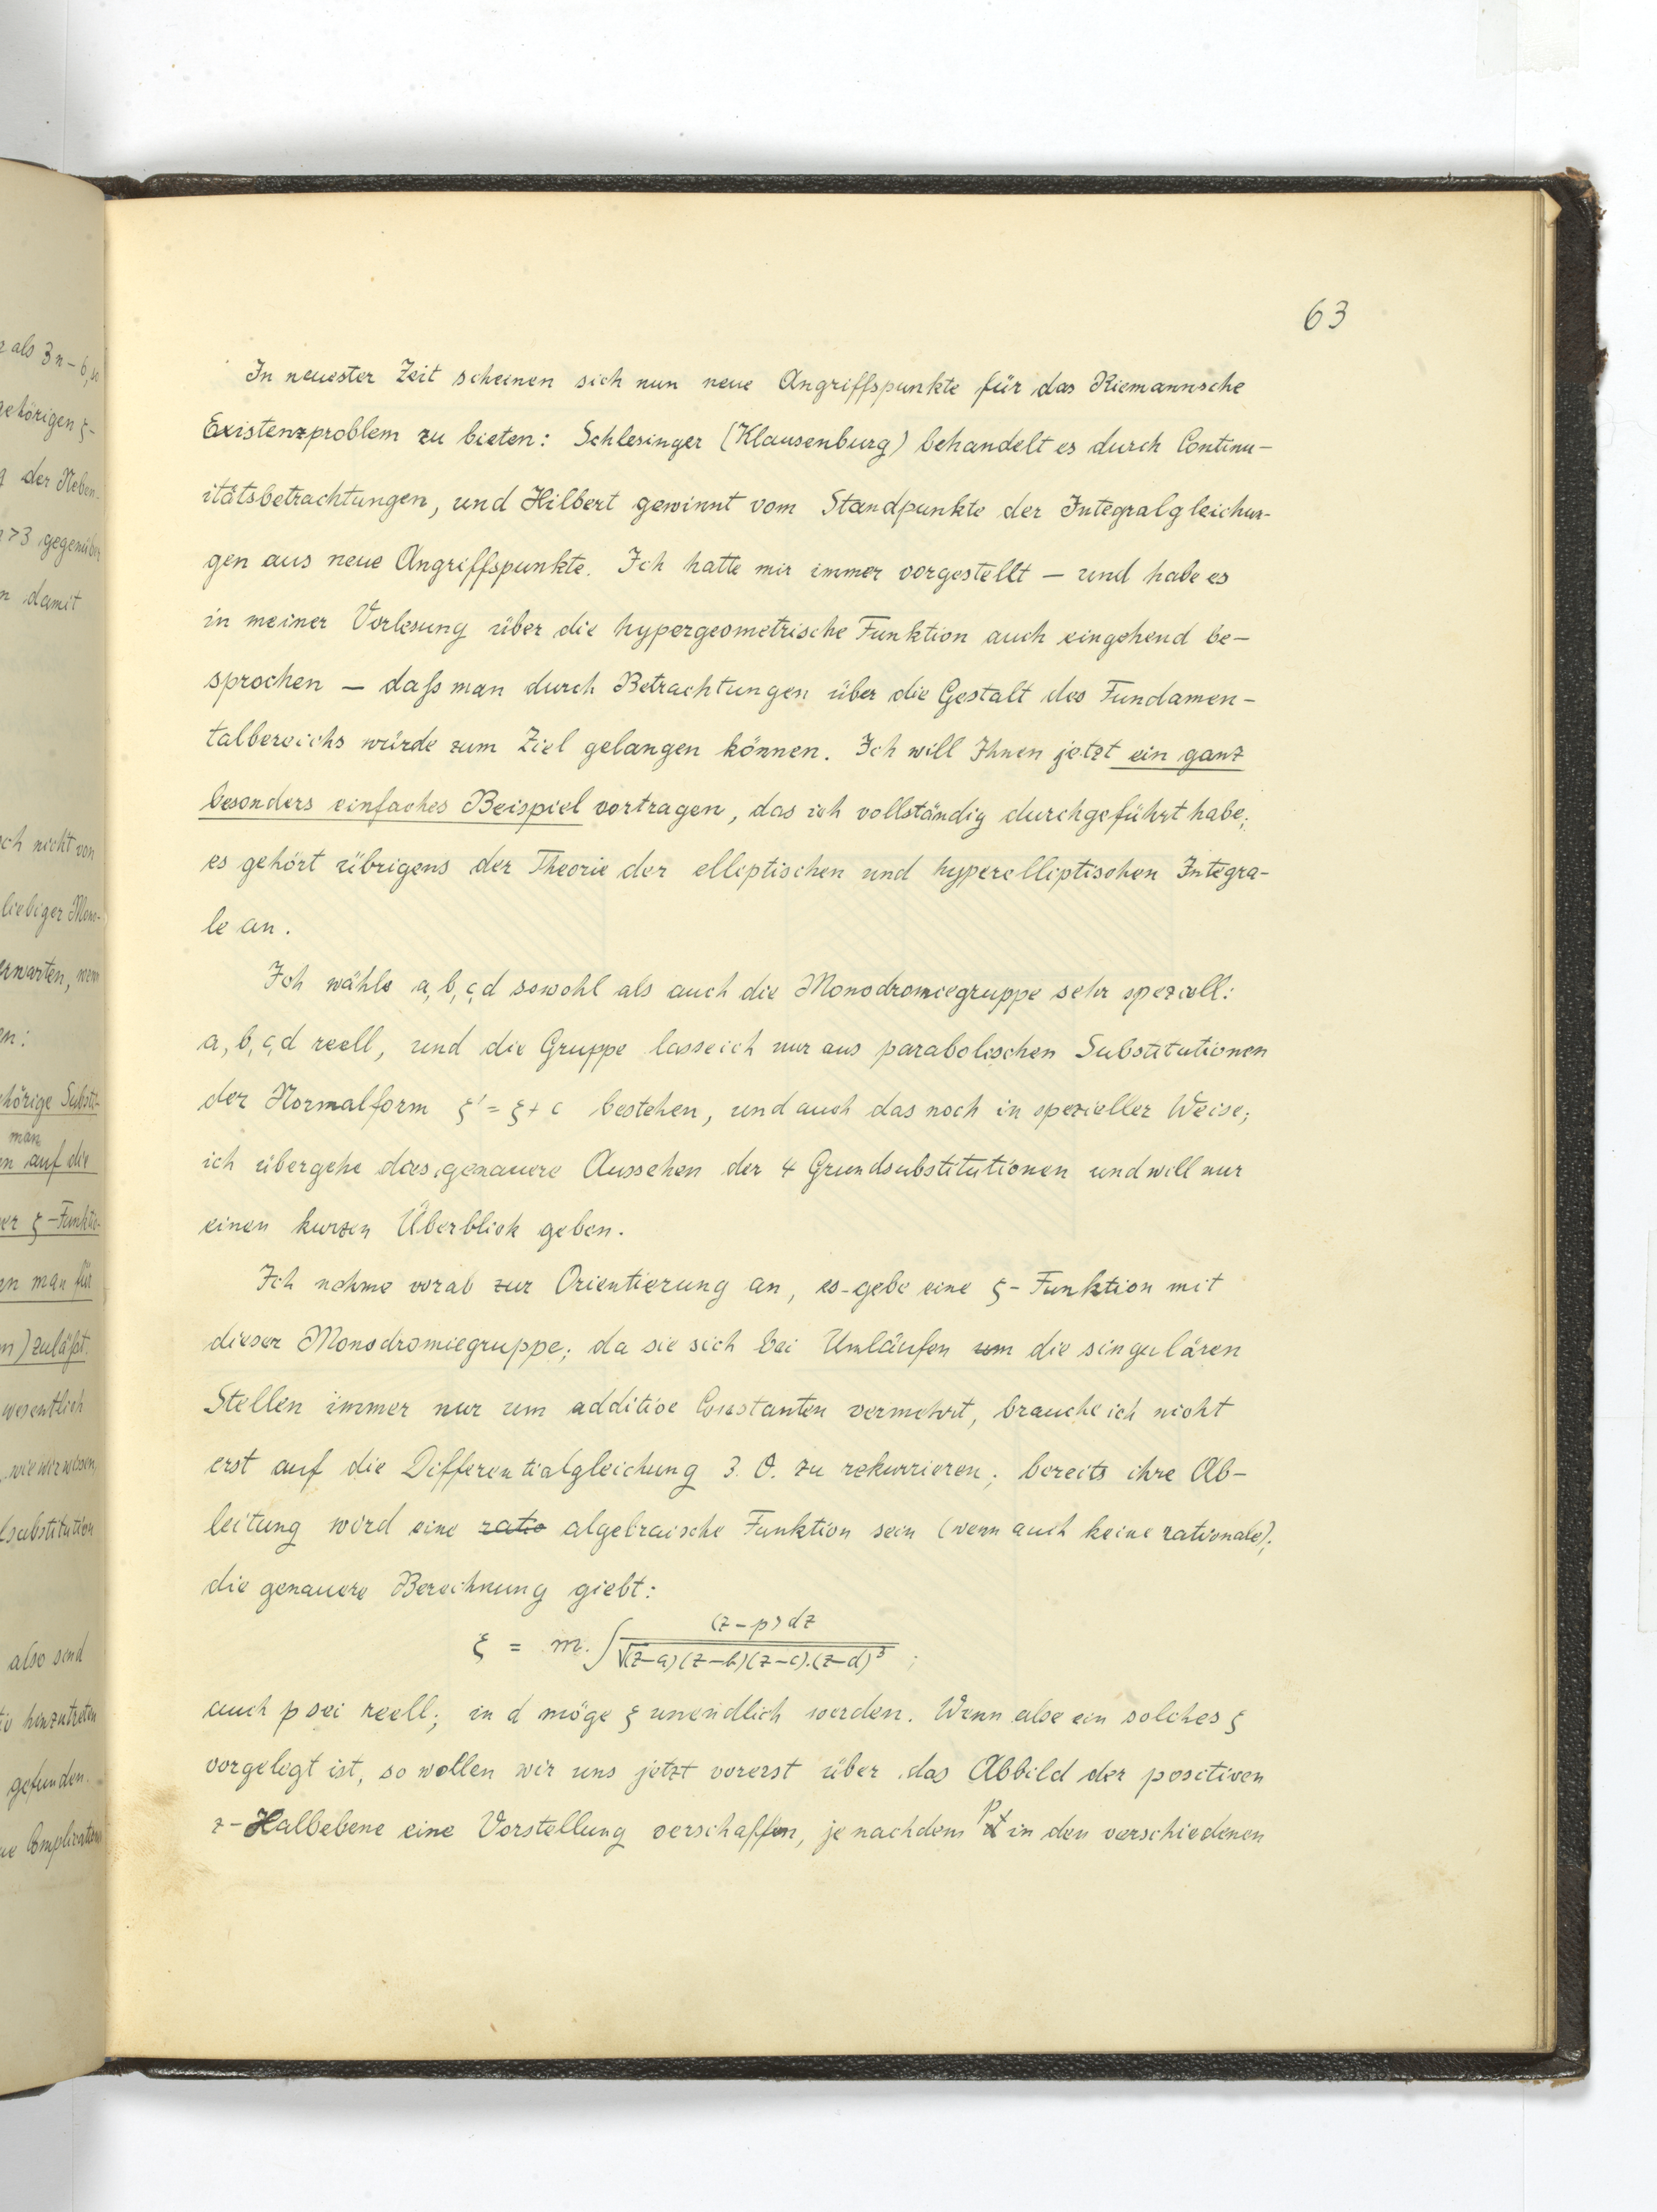 63
In neuester Zeit scheinen sich nun neue Angriffspunkte für das Riemannsche
Existenzproblem zu bieten: Schlesinger (Klausenburg) behandelt es durch Continu-
itätsbetrachtungen, und Hilbert gewinnt vom Standpunkte der Integralgleichun-
gen aus neue Angriffspunkte. Ich hatte mir immer vorgestellt — und habe es
in meiner Vorlesung über die hypergeometrische Funktion auch eingehend be-
sprochen — daß man durch Betrachtungen über die Gestalt des Fundamen-
talbereichs würde zum Ziel gelangen können. Ich will Ihnen jetzt ein ganz
besonders einfaches Beispiel vortragen, das ich vollständig durchgeführt habe;
es gehört übrigens der Theorie der elliptischen und hyperelliptischen Integra-
le an.
Ich wähle a, b, c, d sowohl als auch die Monodromiegruppe sehr speziell:
a, b, c, d reell, und die Gruppe lasse ich nur aus parabolischen Substitutionen
der Normalform ξ' = ξ + c bestehen, und auch das noch in spezieller Weise;
ich übergehe das genauere Aussehen der 4 Grundsubstitutionen und will nur
einen kurzen Überblick geben.
Ich nehme vorab zur Orientierung an, es gebe eine ξ-Funktion mit
dieser Monodromiegruppe; da sie sich bei Umläufen um die singulären
Stellen immer nur um additive Constanten vermehrt, brauche ich nicht
erst auf die Differentialgleichung 3. O. zu rekurrieren; bereits ihre Ab-
leitung wird eine ratio algebraische Funktion sein (wenn auch keine rationale);
die genauere Berechnung giebt:
ξ = m. ∫ (z-p) dz / √(z-a)(z-b)(z-c).(z-d)³ ;
auch p sei reell; in d möge ξ unendlich werden. Wenn also ein solches ξ
vorgelegt ist, so wollen wir uns jetzt vorerst über das Abbild der positiven
z-Halbebene eine Vorstellung verschaffen, je nachdem p in den verschiedenen
als 3n-6, so
gehörigen ξ-
der Neben-
>3 gegenüber
damit
nicht von
liebiger Mono-
erwarten, wenn
:
hörige Substi-
man
auf die
ξ-Funktio-
man für
) zuläßt.
wesentlich
, wie wir wissen,
substitution
also sind
hinzutreten
gefunden.